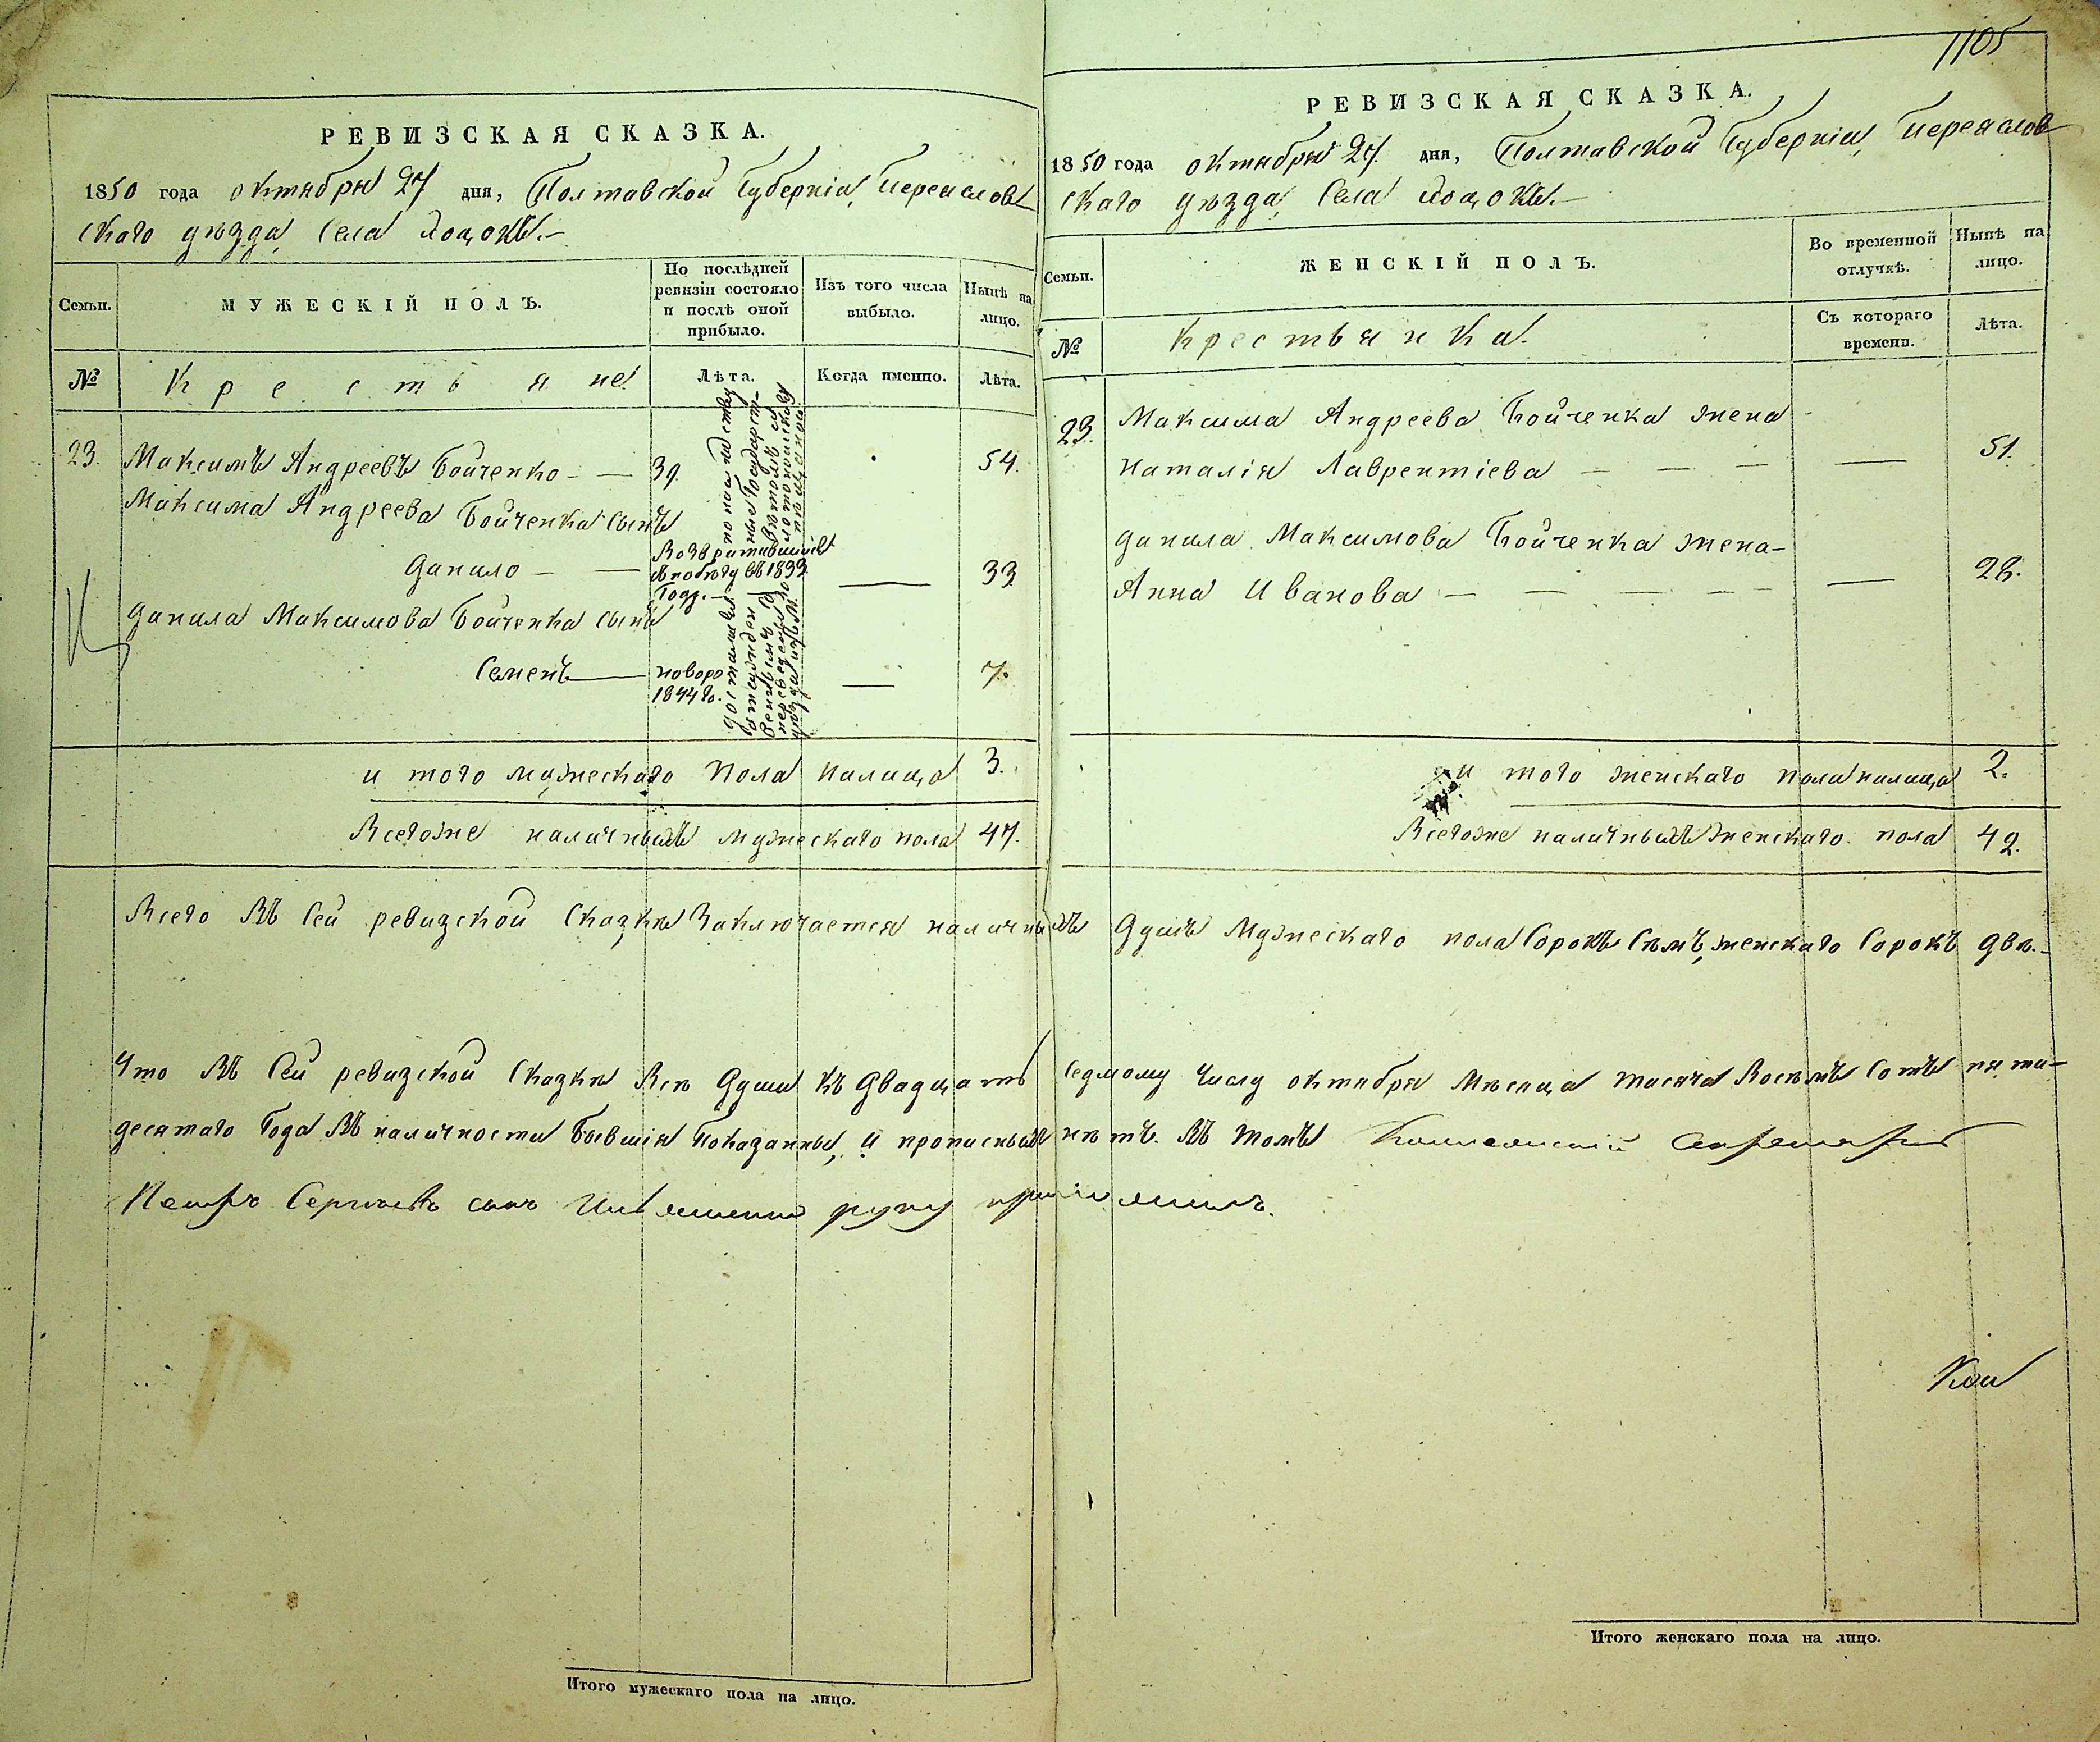 1105
РЕВИЗСКАЯ СКАЗКА.
1850 года октября 27 дня, Полтавской Губерніи, Переяслов
скаго уѣзда, Села
Семьи.
МУЖЕСКІЙ ПОЛЪ.
По послѣдней ревизіи состояло и послѣ оной прибыло.
Изъ того числа выбыло.
Нынѣ на лицо.
№
Крестьяне
Лѣта.
Когда именно.
Лѣта.
23. Максимъ Андреевъ Бойченко — 39. 54.
Максима Андреева Бойченка сынъ
Данило — — Возвратившійся
въ 1833
Году. — 33
Данила Максимова Бойченка сынъ
Семенъ — новоро
1844 го. — 7.
и того мужескаго пола налицо 3.
Всегоже наличныхъ мужескаго пола 47.
РЕВИЗСКАЯ СКАЗКА.
1850 года октября 27. дня, Полтавской Губерніи, Переяслов
скаго уѣзда, Села
Семьи.
ЖЕНСКІЙ ПОЛЪ.
Во временной отлучкѣ.
Нынѣ на лицо.
№
Крестьянка.
Съ котораго времени.
Лѣта.
23. Максима Андреева Бойченка жена
Наталія Лаврентіева — — — — 51.
Данила Максимова Бойченка жена —
Анна Иванова — — — — — — 28.
и того женскаго пола налицо 2.
Всегоже наличныхъ женскаго пола 42.
Всего въ сей ревизской сказкѣ заключается наличныхъ душъ мужескаго пола сорокъ семъ, женскаго сорокъ двѣ. —
Что въ сей ревизской сказкѣ всѣ души къ двадцать седмому числу октября мѣсяца тысяча восемъ сотъ пяти-
десятаго года въ наличности бывшія показанны, и прописныхъ нѣтъ. въ томъ Коллежскій Секретарь
Петръ Сергѣевъ сынъ руку приложилъ.
Итого мужескаго пола на лицо.
Итого женскаго пола на лицо.